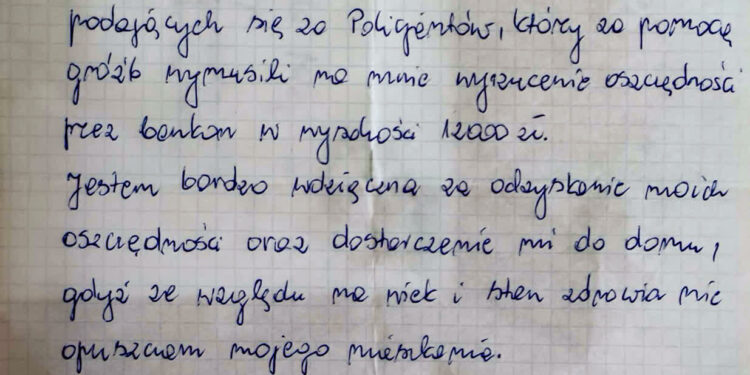 podających się za Policjentów, którzy za pomocą
gróźb wymusili na mnie wyrzucenie oszczędności
przez bankon w wysokości 12000 zł.
Jestem bardzo wdzięczna za odzyskanie moich
oszczędności oraz dostarczenie mi do domu,
gdyż ze względu na wiek i stan zdrowia nie
opuszczam mojego mieszkania.